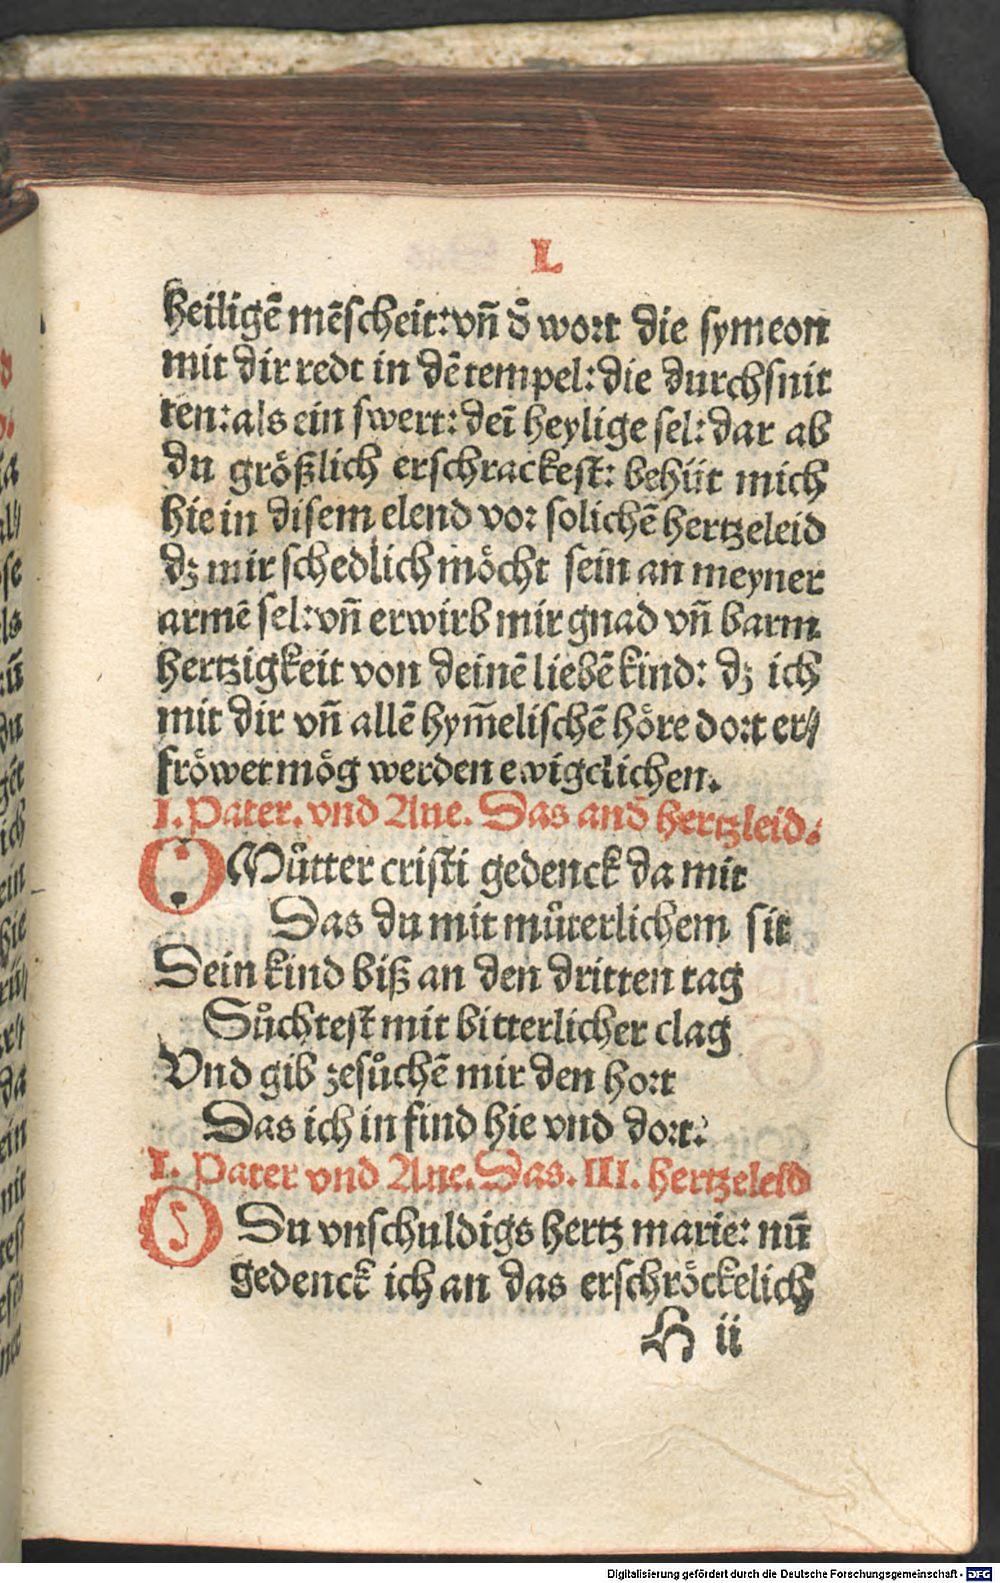 L
heiligē mēscheit: vn̄ d̄ wort die symeon
mit dir redt in dē tempel: die durchsnit
ten: als ein swert: dei heylige sel: dar ab
du größlich erschrackest: behüt mich
hie in disem elend vor solichē hertzeleid
dz mir schedlich möcht sein an meyner
armē sel: vn̄ erwirb mir gnad vn̄ barm
hertzigkeit von deinē liebē kind: dz ich
mit dir vn̄ allē hym̄elischē höre dort er⸗
fröwet mög werden ewigclichen.
I. Pater. vnd Aue. Das and̄ hertzleid.
O Můtter cristi gedenck da mit
Das du mit můterlichem sit
Dein kind biß an den dritten tag
Sůchtest mit bitterlicher clag
Vnd gib zesůchē mir den hort
Das ich in find hie vnd dort.
I. Pater vnd Aue. Das. III. hertzeleid
O Du vnschuldigs hertz marie: nū
gedenck ich an das erschröckelich
H ii
Digitalisierung gefördert durch die Deutsche Forschungsgemeinschaft - DFG